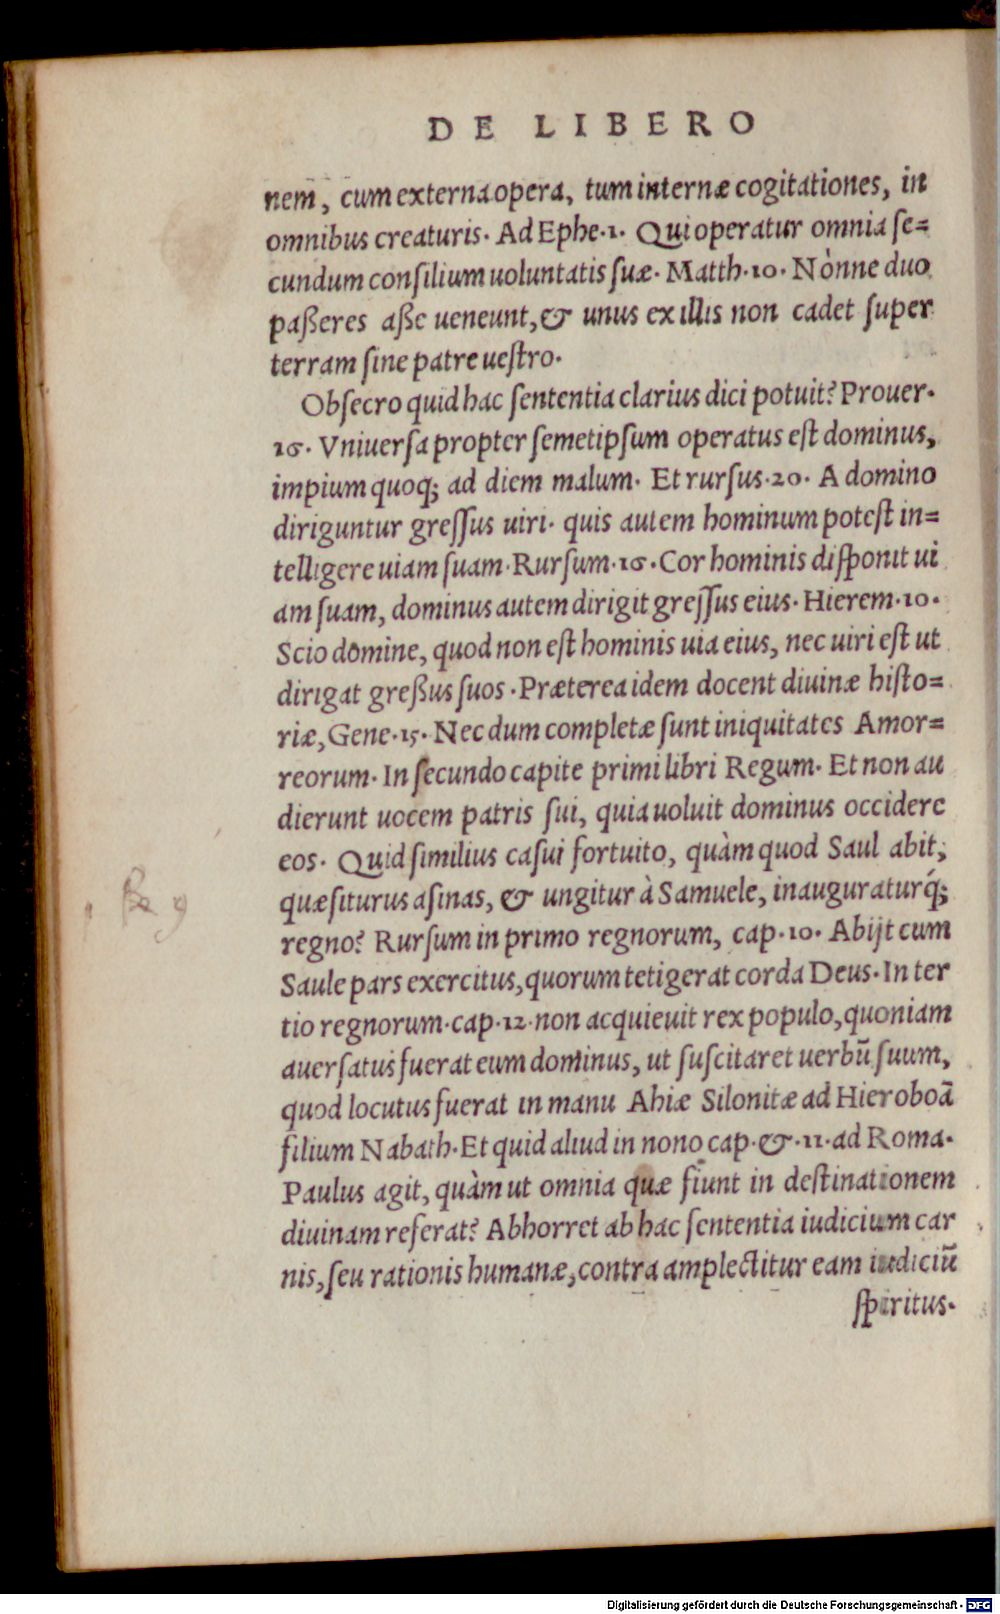 DE LIBERO
nem, cum externa opera, tum internæ cogitationes, in
omnibus creaturis. Ad Ephe.1. Qui operatur omnia ſe=
cundum conſilium uoluntatis ſuæ. Matth.10. Nònne duo
paßeres aße ueneunt, & unus ex illis non cadet ſuper
terram ſine patre ueſtro.
Obſecro quid hac ſententia clarius dici potuit? Prouer.
16. Vniuerſa propter ſemetipſum operatus eſt dominus,
impium quoq; ad diem malum. Et rurſus.20. A domino
diriguntur greſſus uiri. quis autem hominum poteſt in=
telligere uiam ſuam. Rurſum.16. Cor hominis diſponit ui
am ſuam, dominus autem dirigit greſſus eius. Hierem.10.
Scio domine, quod non eſt hominis uia eius, nec uiri eſt ut
dirigat greßus ſuos. Præterea idem docent diuinæ hiſto=
riæ, Gene.15. Nec dum completæ ſunt iniquitates Amor=
reorum. In ſecundo capite primi libri Regum. Et non au
dierunt uocem patris ſui, quia uoluit dominus occidere
eos. Quid ſimilius caſui fortuito, quàm quod Saul abit,
quæſiturus aſinas, & ungitur à Samuele, inauguraturq́;
regno? Rurſum in primo regnorum, cap.10. Abijt cum
Saule pars exercitus, quorum tetigerat corda Deus. In ter
tio regnorum.cap.12.non acquieuit rex populo, quoniam
auerſatus fuerat eum dominus, ut ſuſcitaret uerbũ ſuum,
quod locutus fuerat in manu Ahiæ Silonitæ ad Hieroboã
filium Nabath. Et quid aliud in nono cap.&.11.ad Roma.
Paulus agit, quàm ut omnia quæ fiunt in deſtinationem
diuinam referat? Abhorret ab hac ſententia iudicium car
nis, ſeu rationis humanæ, contra amplectitur eam iudiciũ
ſpiritus.
Digitalisierung gefördert durch die Deutsche Forschungsgemeinschaft - DFG